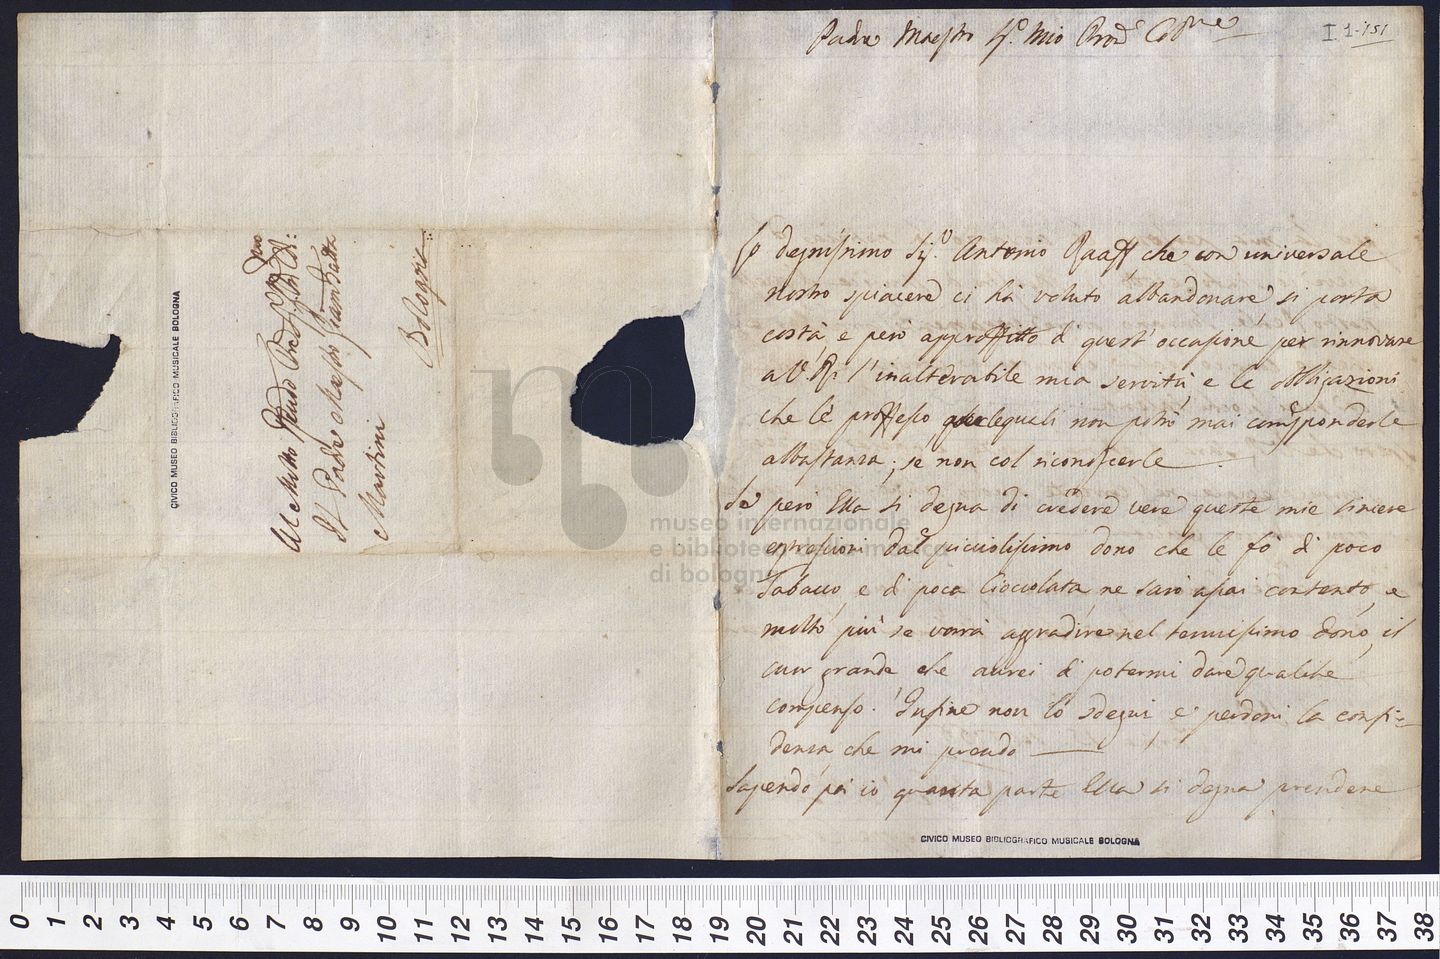 Al Molto Rendo Pre Sigr Pre Col:mo
Il Padre Maestro Giambatta
Martini
Bologna
CIVICO MUSEO BIBLIOGRAFICO MUSICALE BOLOGNA
I.1-151
Padre Maestro Sr. Mio Prone Colmo
Il degnissimo Sigr. Antonio Raaff che con universale
nostro spiacere ci hà voluto abbandonare si porta
costà, e però approffitto di quest' occasione per rinnovare
a V. R. l'inalterabile mia servitù e le obbligazioni
che le professo lequali non potrò mai corrisponderle
abbastanza, se non col riconoscerle
Se però Ella si degna di credere vere queste mie sincere
espressioni dal picciolissimo dono che le fò di poco
Tabacco, e di poca Cioccolata, ne sarò assai contento, e
molto più se vorrà aggradire nel tenuissimo dono, il
cuor grande che aurei di potermi dare qualche
compenso. Insine non lo sdegni, e perdoni la confi=
denza che mi prendo
Sapendo poi io quanta parte Ella si degna prendere
CIVICO MUSEO BIBLIOGRAFICO MUSICALE BOLOGNA
museo internazionale
e biblioteca della musica
di bologna
0 1 2 3 4 5 6 7 8 9 10 11 12 13 14 15 16 17 18 19 20 21 22 23 24 25 26 27 28 29 30 31 32 33 34 35 36 37 38